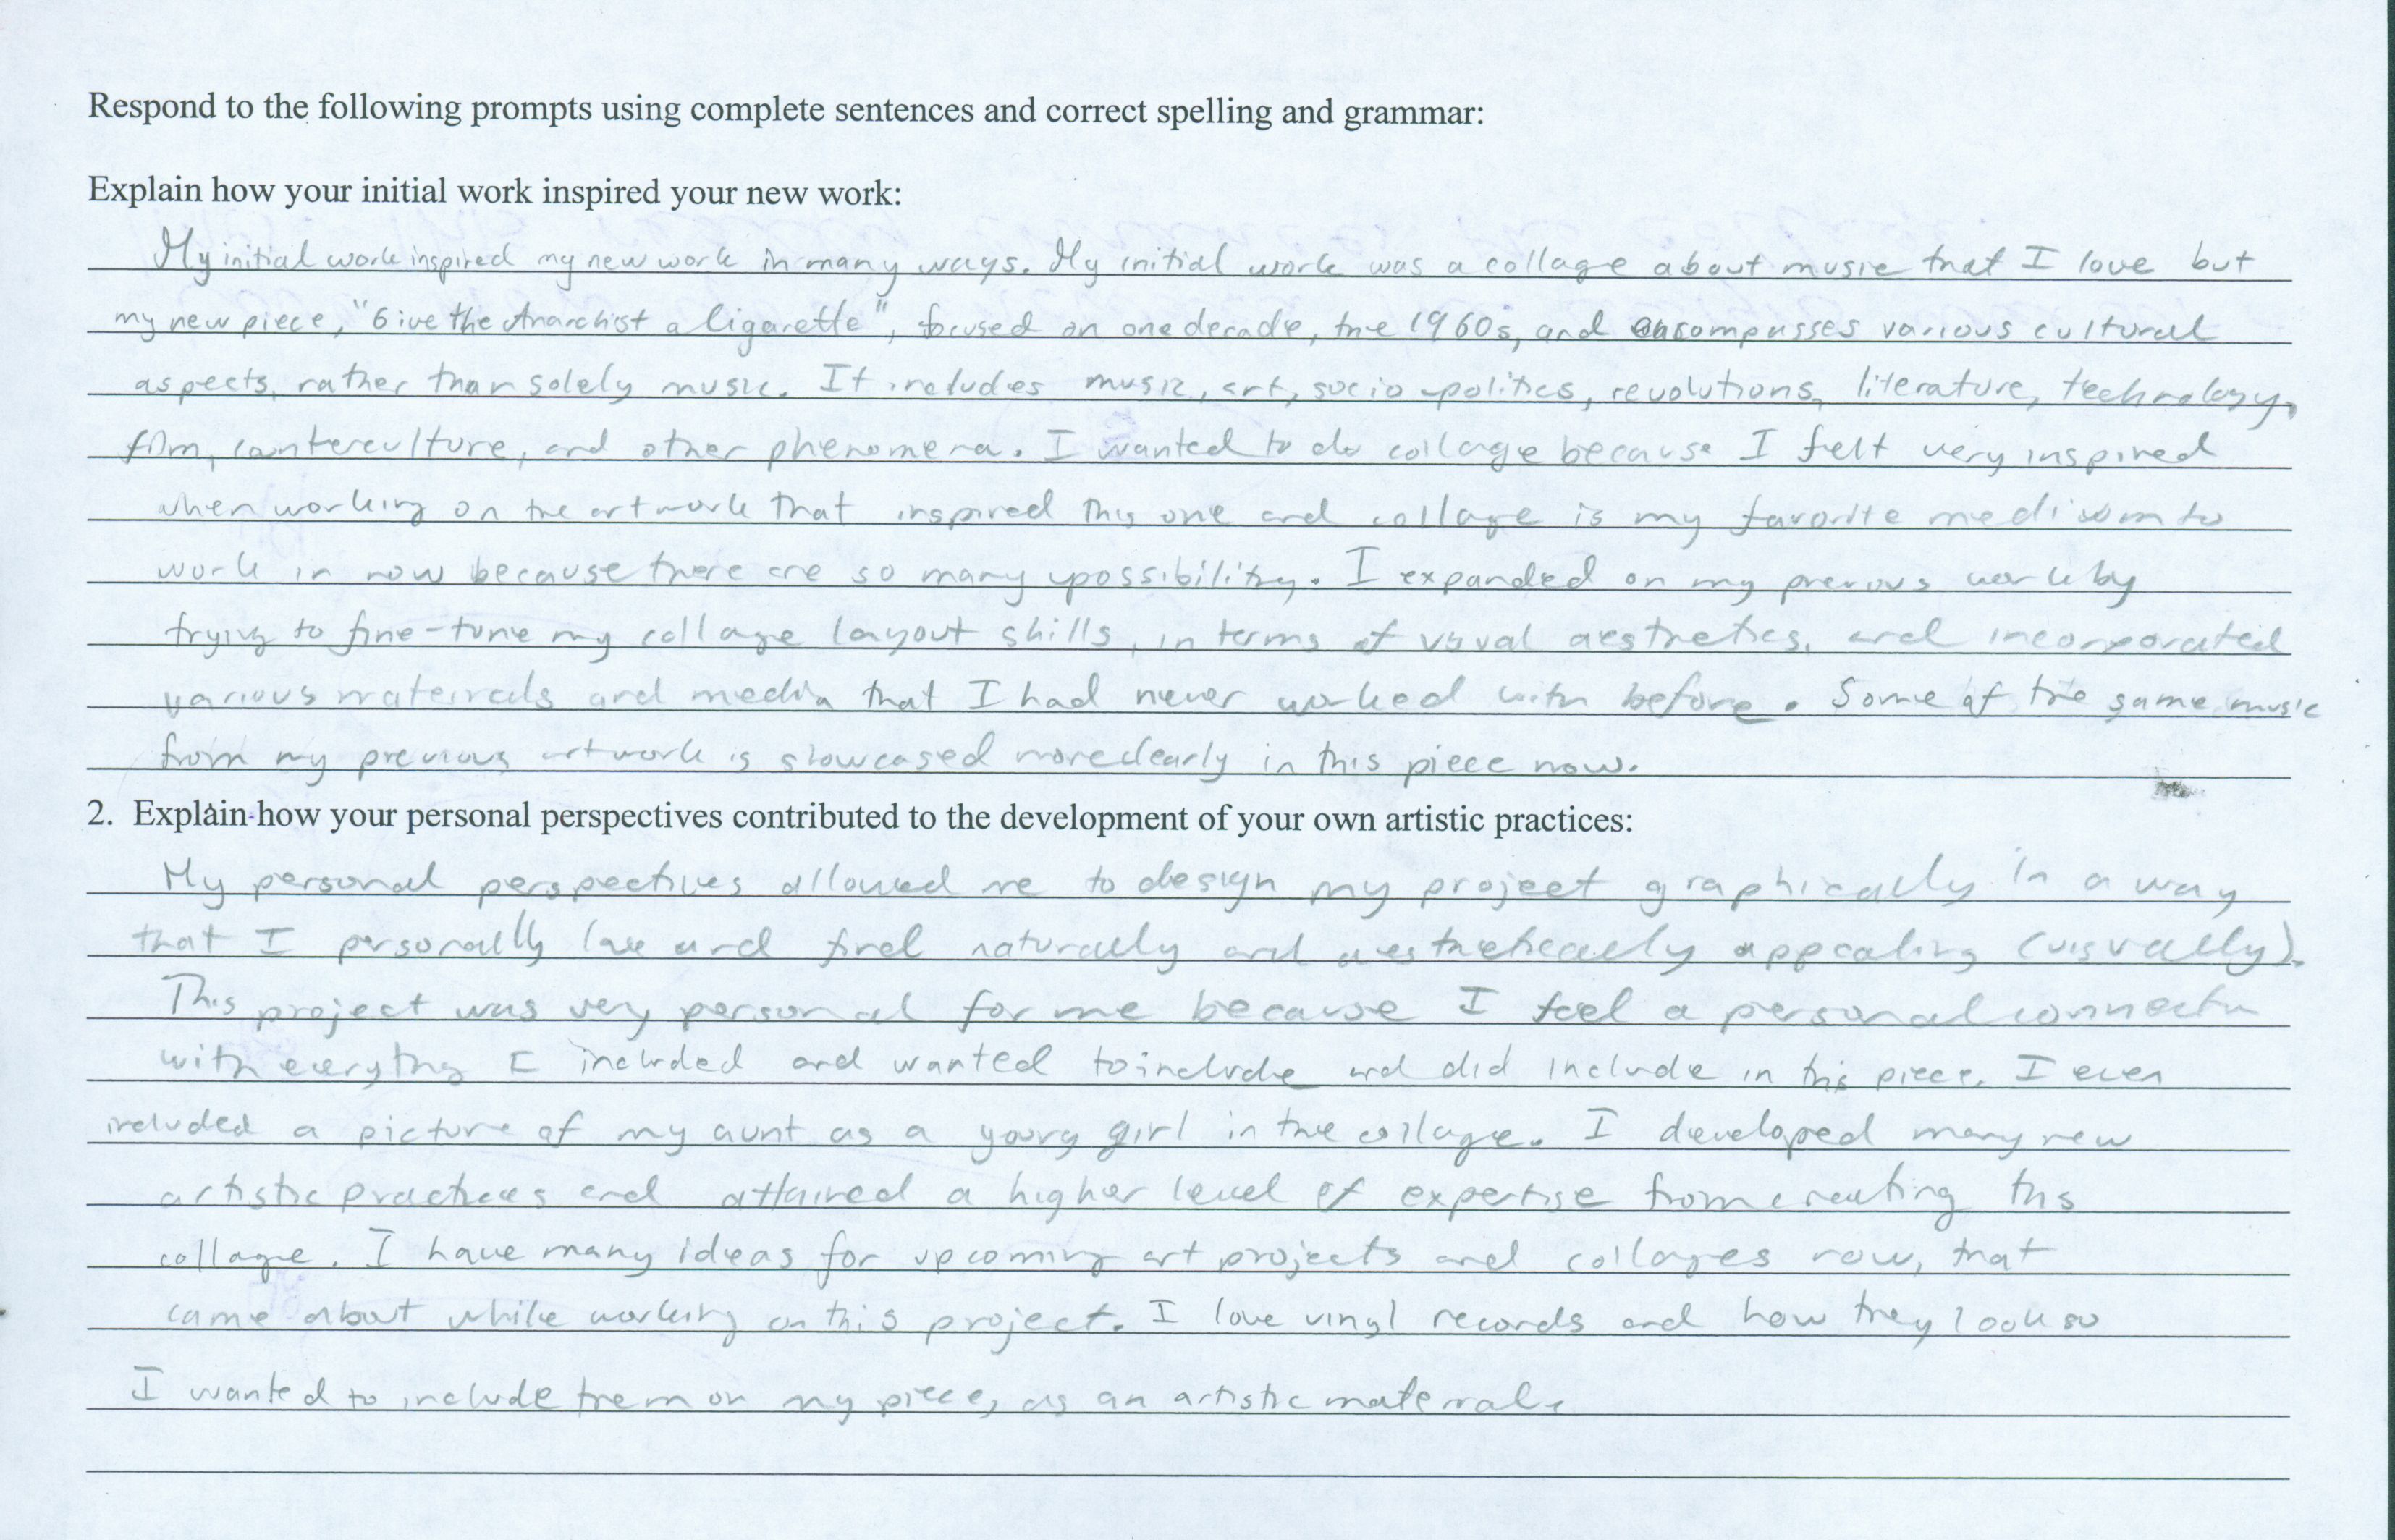 Respond to the following prompts using complete sentences and correct spelling and grammar:
Explain how your initial work inspired your new work:
My initial work inspired my new work in many ways. My initial work was a collage about music that I love but
my new piece, "Give the Anarchist a Cigarette", focused on one decade, the 1960s, and encompasses various cultural
aspects, rather than solely music. It includes music, art, socio-politics, revolutions, literature, technology,
film, counterculture, and other phenomena. I wanted to do collage because I felt very inspired
when working on the artwork that inspired this one and collage is my favorite medium to
work in now because there are so many possibility. I expanded on my previous work by
trying to fine-tune my collage layout skills, in terms of visual aesthetics, and incorporated
various materials and media that I had never worked with before. Some of the same music
from my previous artwork is showcased more clearly in this piece now.
2. Explain how your personal perspectives contributed to the development of your own artistic practices:
My personal perspectives allowed me to design my project graphically in a way
that I personally love and find naturally and aesthetically appealing (visually).
This project was very personal for me because I feel a personal connectn
with everythng I included and wanted to include and did include in this piece. I even
included a picture of my aunt as a young girl in the collage. I developed many new
artistic practices and attained a higher level of expertise from creating this
collage. I have many ideas for upcoming art projects and collages now, that
came about while working on this project. I love vinyl records and how they look so
I wanted to include them on my piece, as an artistic material.